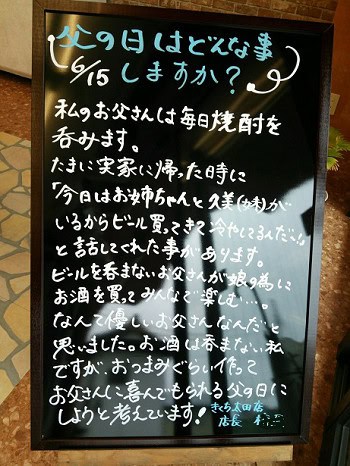 父の日はどんな事
6/15 しますか?
私のお父さんは毎日焼酎を
呑みます。
たまに実家に帰った時に
「今日はお姉ちゃんと久美(妹)が
いるからビール買ってきて冷やしてるんだ〜」
と話してくれた事があります。
ビールを呑まないお父さんが娘の為に
お酒を買ってみんなで楽しむ…。
なんて優しいお父さんなんだと
思いました。お酒は呑まない私
ですが、おつまみぐらい作って
お父さんに喜んでもられる父の日に
しようと考えています!
きくち太田店
店長